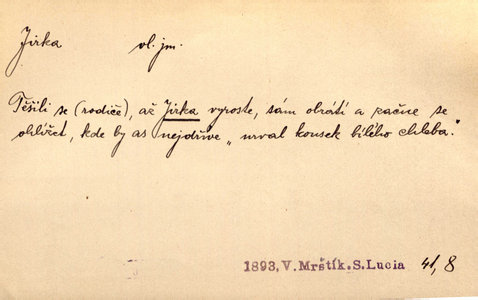 Jirka vl. jm.
Těšili se (rodiče), až Jirka vyroste, sám obrátí a začne se
ohlížet, kde by as nejdříve „urval kousek bílého chleba."
1893, V. Mrštík. S. Lucia 41, 8